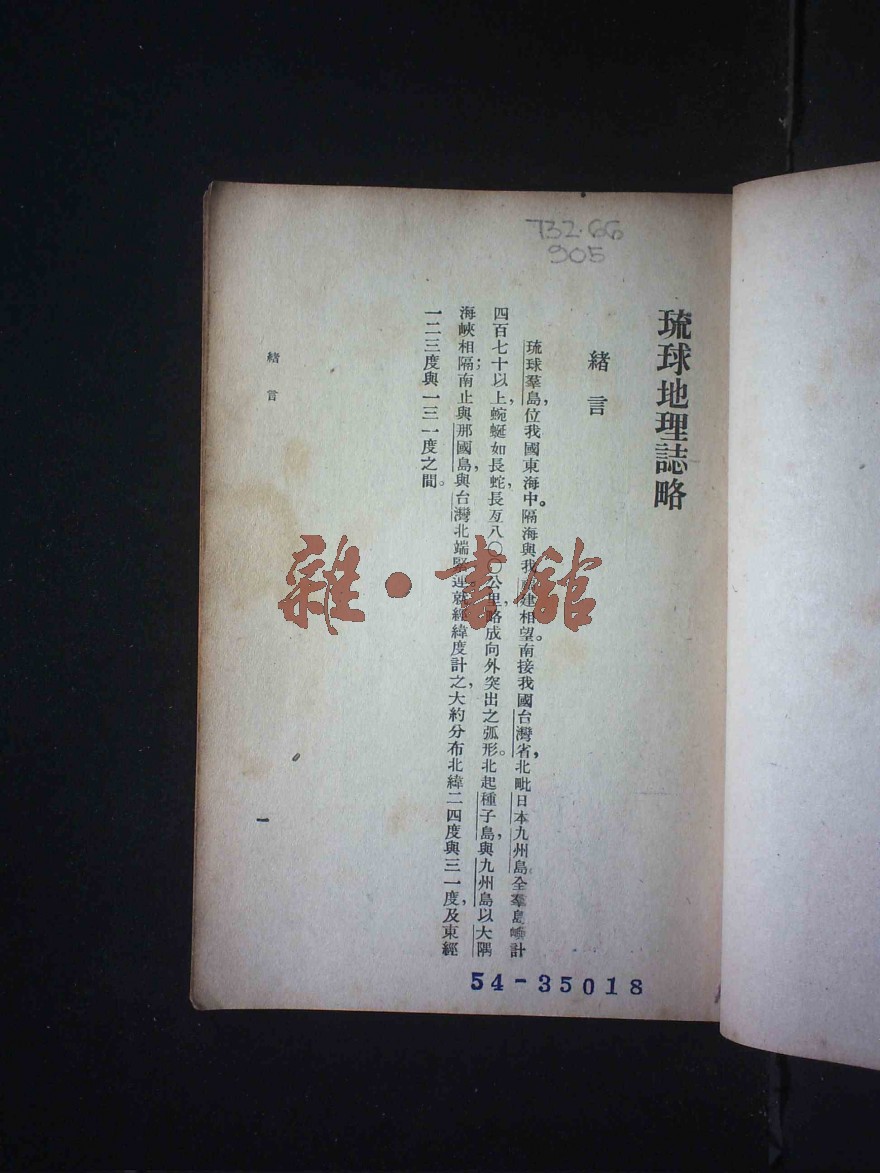 732.66
905
琉球地理誌略
緒言
琉球羣島，位我國東海中。隔海與我福建相望。南接我國台灣省，北毗日本九州島。全羣島嶼計
四百七十以上，蜿蜒如長蛇，長亙八〇〇公里，略成向外突出之弧形。北起種子島，與九州島以大隅
海峽相隔；南止與那國島，與台灣北端緊連。就經緯度計之，大約分布北緯二四度與三一度，及東經
一二三度與一三一度之間。
緒言
一
雜·書館
54-35018